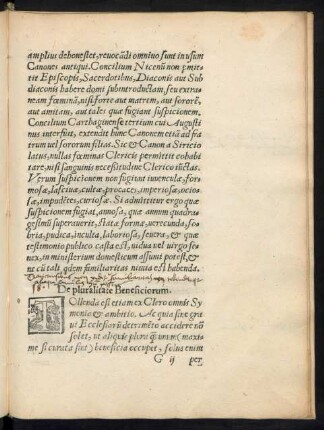 amplius dehonestet, revocādi omnino sunt in usum
Canones antiqui. Concilium Nicenū non pmit-
tit Episcopis, Sacerdotibus, Diaconis aut Sub
diaconis habere domi subintroductam, seu extra-
neam fœminā, nisi forte aut matrem, aut sororē,
aut amitam, aut tales quæ fugiant suspicionem.
Concilium Carthaginense tertium cui Augusti-
nus interfuit, extendit hunc Canonem etiā ad fra
trum vel sororum filias. Sic & Canon à Siricio
latus, nullas fœminas Clericis permittit cohabi-
tare, nisi sanguinis necessitudine Clerico iūctas.
Verum suspicionem non fugiunt iuvenculæ, for-
mosæ, lascivæ, cultæ, procaces, imperiosæ, ocio-
sæ, impudētes, curiosæ. Si admittitur ergo quæ
suspicionem fugiat, annosa, quæ annum quadra-
gesimū superaverit, ætate formæ, verecunda, so-
bria, pudica, inculta, laboriosa, severa, & quæ
testimonio publico casta est, vidua vel virgo se-
nex, in ministerium domesticum assumi potest, &
ne cū tali qdem familiaritas nimia est habenda.
De pluralitate Beneficiorum.
Tollenda est etiam ex Clero omnis Sy
monia & ambitio. Ac quia sine gra
vi Ecclesiarū detrimēto accidere nō
solet, ut aliquis plura q̄ unum (maxi
me si curata sint) beneficia occupet, solus enim
G ij per